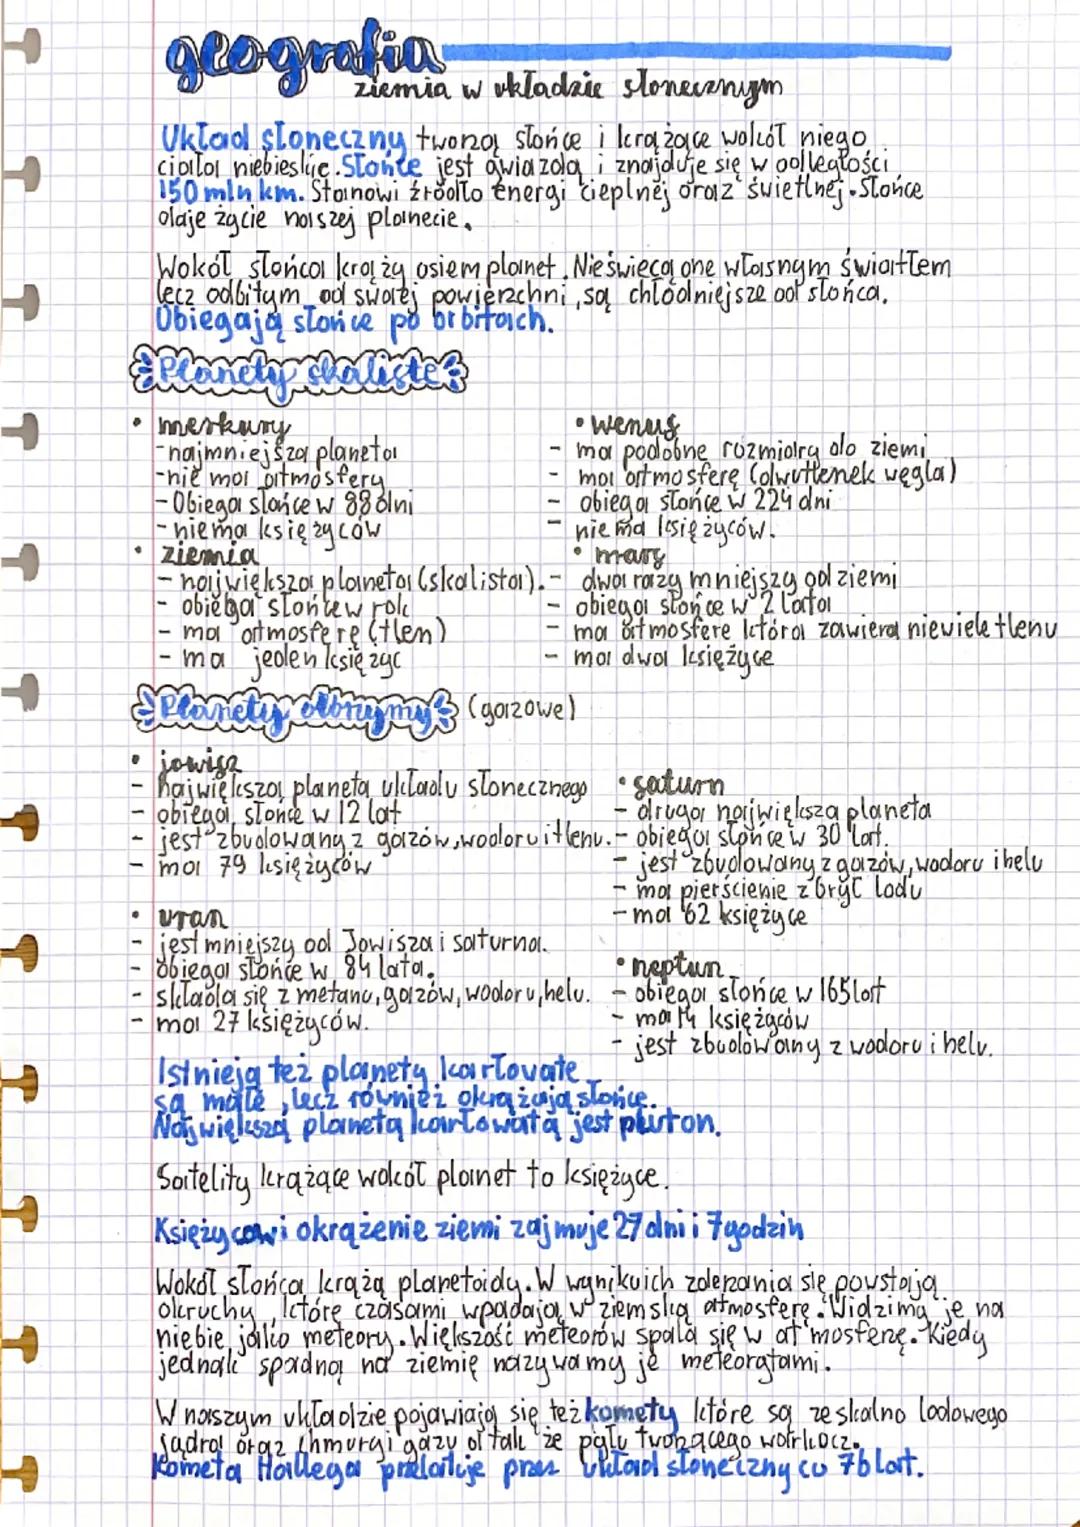 geografia
ziemia w układzie słonecznym
Układ słoneczny tworzą słońce i krążące wokół niego
ciała niebieskie. Słońce jest gwiazdą i znajduje się w odległości
150 mln km. Stanowi źródło energi cieplnej oraz świetlnej. Słońce
daje życie naszej planecie.
Wokół słońca krąży osiem planet. Nie świecą one własnym światłem
lecz odbitym od swojej powierzchni, są chłodniejsze od słońca.
Obiegają słońce po orbitach.
Planety skaliste
• merkury
- najmniejsza planeta
- nie ma atmosfery
- Obiega słońce w 88 dni
- nie ma księżyców
• wenus
- ma podobne rozmiary do ziemi
- ma atmosferę (dwutlenek węgla)
- obiega słońce w 224 dni
- nie ma księżyców.
• ziemia
- największa planeta (skalista).
- obiega słońce w rok
- ma atmosferę (tlen)
- ma jeden księżyc
• mars
- dwa razy mniejszy od ziemi
- obiega słońce w 2 lata
- ma atmosfere która zawiera niewiele tlenu
- ma dwa księżyce
Planety olbrzymy (gazowe)
• jowisz
- największa planeta układu słonecznego
- obiega słońce w 12 lat
- jest zbudowany z gazów, wodoru i tlenu.
- ma 79 księżyców
• saturn
- druga największa planeta
- obiega słońce w 30 lat.
- jest zbudowany z gazów, wodoru i helu
- ma pierścienie z brył lodu
- ma 62 księżyce
• uran
- jest mniejszy od Jowisza i saturna.
- obiega słońce w 84 lata.
- składa się z metanu, gazów, wodoru, helu.
- ma 27 księżyców.
• neptun
- obiega słońce w 165 lat
- ma 14 księżyców
- jest zbudowany z wodoru i helu.
Istnieją też planety karłowate
są małe, lecz również okrążają słońce.
Największą planetą karłowatą jest pluton.
Satelity krążące wokół planet to księżyce.
Księżycowi okrążenie ziemi zajmuje 27 dni i 7 godzin
Wokół słońca krążą planetoidy. W wyniku ich zderzania się powstają
okruchy, które czasami wpadają w ziemską atmosferę. Widzimy je na
niebie jako meteory. Większość meteorów spala się w atmosferze. Kiedy
jednak spadną na ziemię nazywamy je meteorytami.
W naszym układzie pojawiają się też komety które są ze skalno lodowego
jądra oraz chmury i gazu a także pyłu tworzącego warkocz.
Kometa Hallega przelatuje przez układ słoneczny co 76 lat.